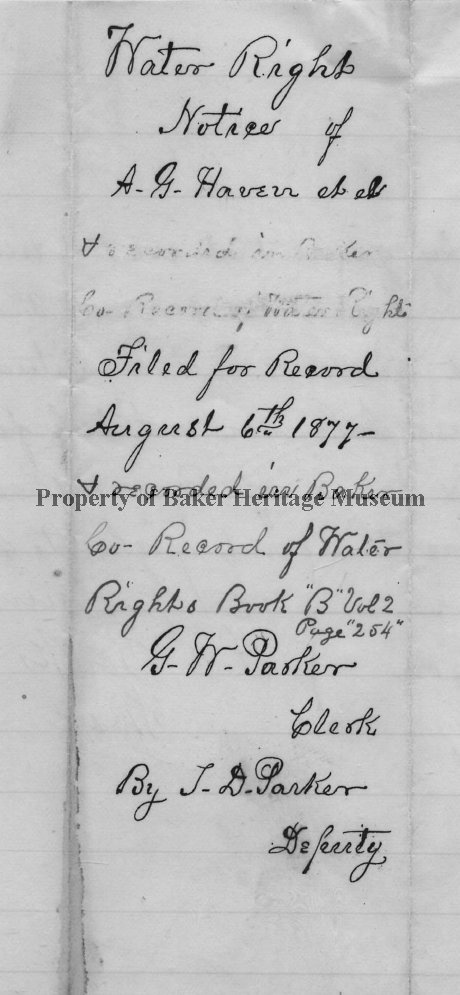 Water Right
Notice of
A. G. Haven et al
& recorded in Baker
Co- Record of Water Right
Filed for Record
August 6th 1877-
& recorded in Baker
Property of Baker Heritage Museum
Co- Record of Water
Rights Book "B" Vol 2
Page "254"
G. W. Parker
Clerk
By J. D. Parker
Deputy